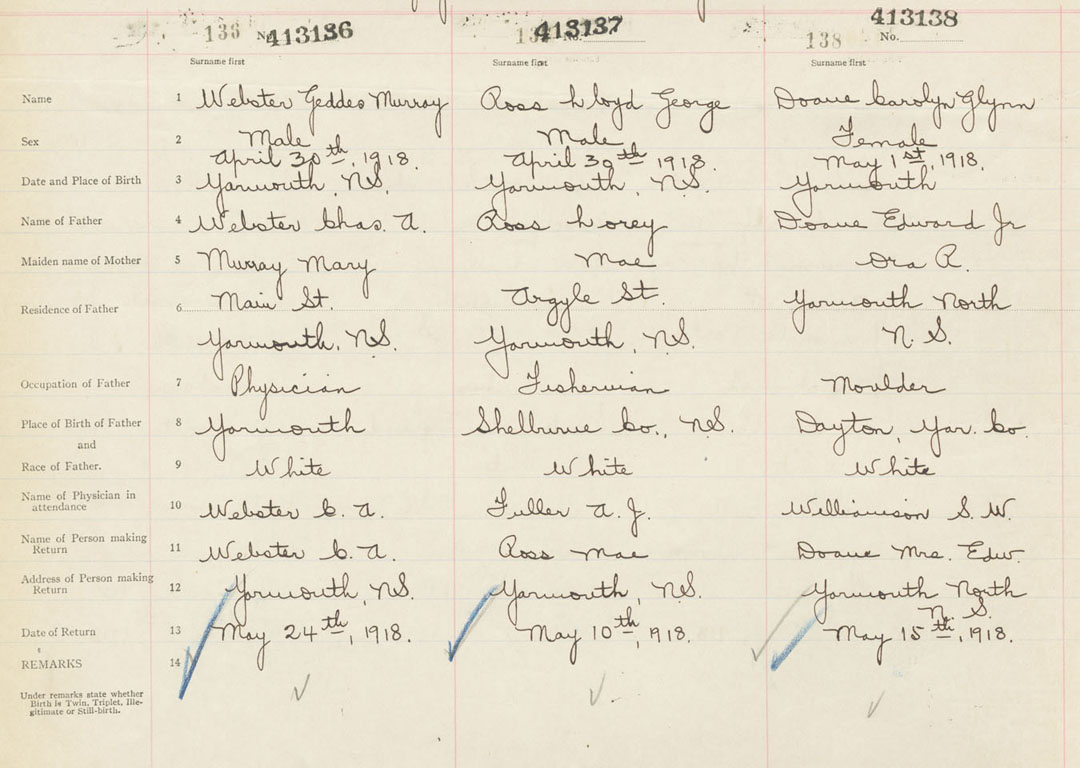 136 No. 413136
137 No. 413137
138 No. 413138
Surname first Surname first Surname first
Name 1 Webster Geddes Murray Ross Lloyd George Doane Carolyn Glynn
Sex 2 Male Male Female
April 30th, 1918. April 30th, 1918. May 1st, 1918.
Date and Place of Birth 3 Yarmouth, N.S. Yarmouth, N.S. Yarmouth
Name of Father 4 Webster Chas. A. Ross Lorey Doane Edward Jr
Maiden name of Mother 5 Murray Mary Mae Ora R.
Residence of Father 6 Main St. Argyle St. Yarmouth North
Yarmouth, N.S. Yarmouth, N.S. N. S.
Occupation of Father 7 Physician Fisherman Moulder
Place of Birth of Father 8 Yarmouth Shelburne Co., N.S. Dayton, Yar. Co.
and
Race of Father. 9 White White White
Name of Physician in
attendance 10 Webster C. A. Fuller A. J. Williamson S. W.
Name of Person making
Return 11 Webster C. A. Ross Mae Doane Mrs. Edw.
Address of Person making
Return 12 Yarmouth, N.S. Yarmouth, N.S. Yarmouth North
N. S.
Date of Return 13 May 24th, 1918. May 10th, 1918. May 15th, 1918.
REMARKS 14
Under remarks state whether
Birth is Twin, Triplet, Ille-
gitimate or Still-birth.